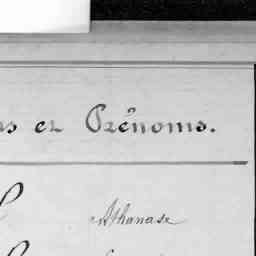 et Prénoms.
Athanase